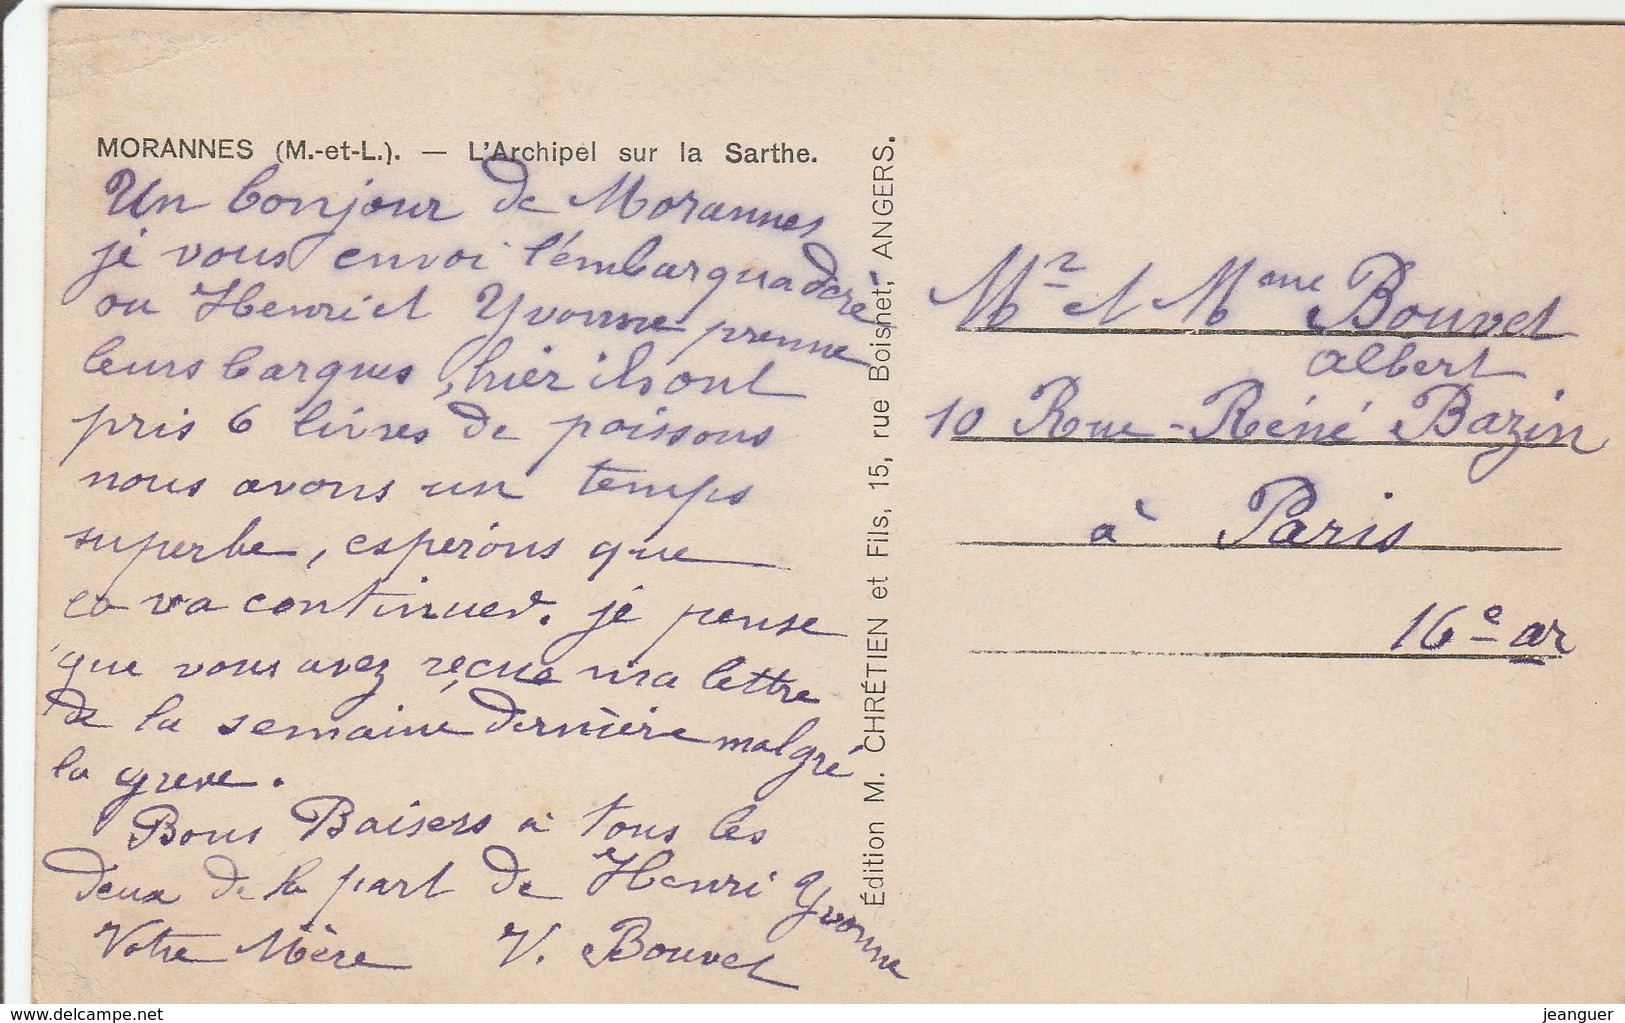 MORANNES (M.-et-L.). — L'Archipel sur la Sarthe.
Un bonjour de Morannes
je vous envoi l'émbarquaderè
ou Henri et Yvonne prenne
leurs barques, hier ils ont
pris 6 livres de poissons
nous avons un temps
superbe, esperons que
ca va continuer. je pense
que vous avez reçue ma lettre
de la semaine dernière malgré
la greve.
Bons Baisers a tous les
deux de la part de Henri Yvonne
Votre Mère V. Bouvet
Édition M. CHRÉTIEN et Fils, 15, rue Boisnet, ANGERS.
Mr et Mme Bouvet
Albert
10 Rue - Réné Bazin
à Paris
16e ar
www.delcampe.net
jeanguer